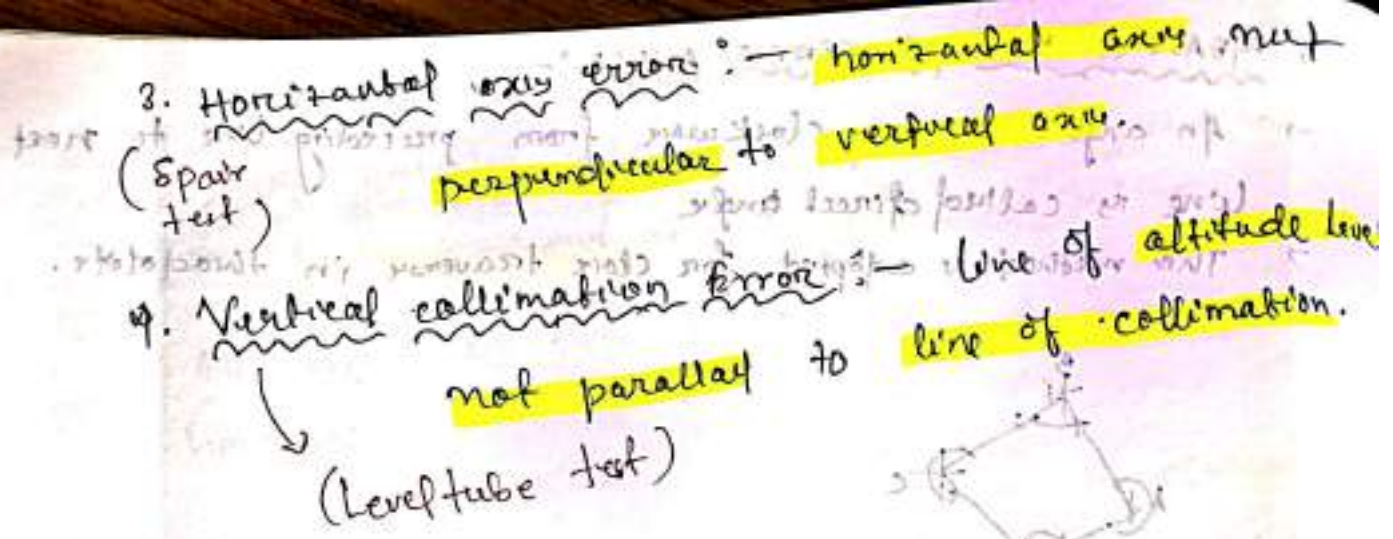 3. Horizantal axis error :- horizantal axis not
(Spair test) perpendicular to vertical axis.
4. Vertical collimation Error :- line of altitude level
not parallal to line of collimation.
(Level tube test)